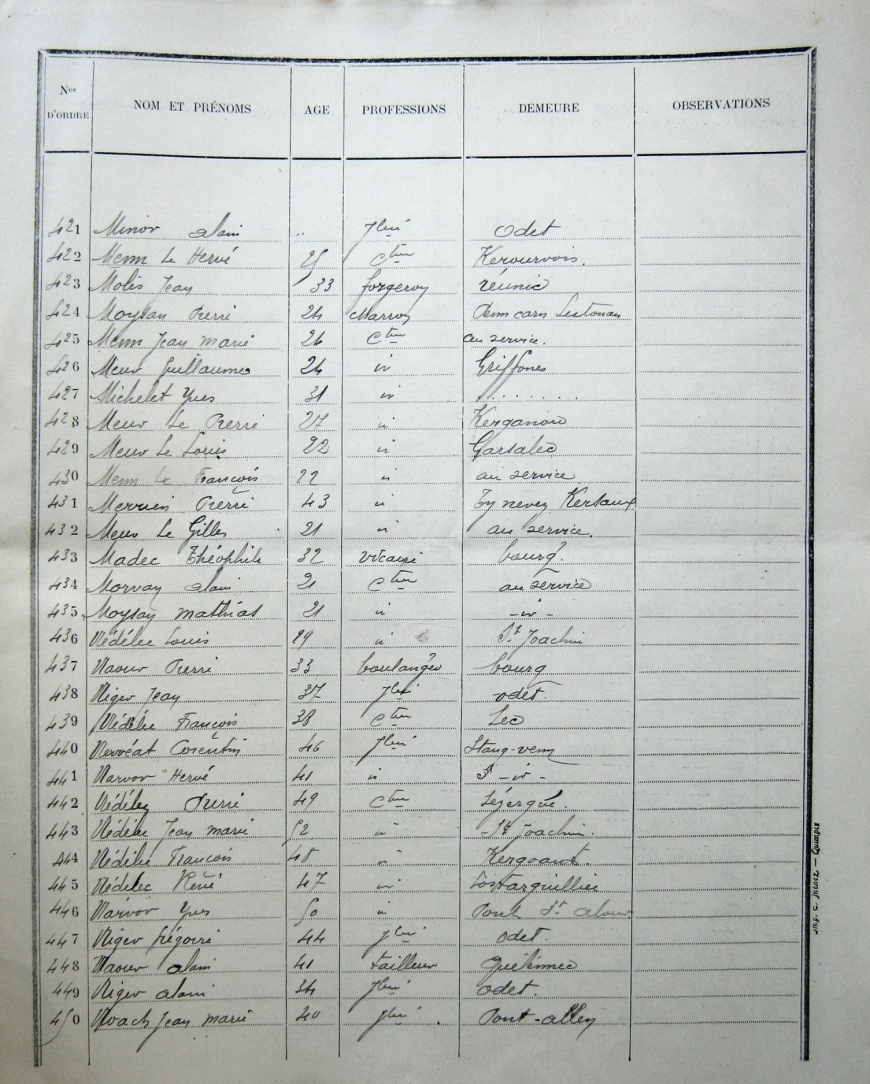 Nos D'ORDRE NOM ET PRÉNOMS AGE PROFESSIONS DEMEURE OBSERVATIONS
421 Minor alain .. Jlier Odet
422 Menn Le Hervé 25 cteur Kerourvois.
423 Molis Jean 33 forgeron réunic
424 Moysan Pierre 24 Marron Penn carn Lestonan
425 Menn Jean marie 26 cteur au service.
426 Meur Guillaume 24 id Griffones
427 Michelet Yves 31 id
428 Meur Le Pierre 27 id Kerganou
429 Meur Le Louis 22 id Garsalec
430 Menn Le François 22 id au service
431 Pierre 43 id Ty nevez
432 Meur Le Gilles 21 id au service.
433 Madec Théophile 32 vicaire bourg.
434 Morvan alain 21 cteur au service
435 Moysan mathias 21 id - id -
436 Nédélec Louis 29 id St Joachin
437 Naour Pierre 33 boulanger bourg
438 Niger Jean 37 Jlier odet
439 Nédélec François 38 cteur Leo
440 Corentin 46 Jlier Stang-venn
441 Narvor Hervé 41 id - id -
442 Nédélec Pierre 49 cteur
443 Nédélec Jean marie 52 id St Joachin.
444 Nédélec François 48 id
445 Nédélec René 47 id
446 Narvor Yves 50 id Pont St
447 Niger Grégoire 44 Jlier odet.
448 Naour alain 41 tailleur Quilinnec
449 Niger alain 34 Jlier odet.
450 Jean marie 40 Jlier . Pont-allen
Imp. C. MENEZ — QUIMPER